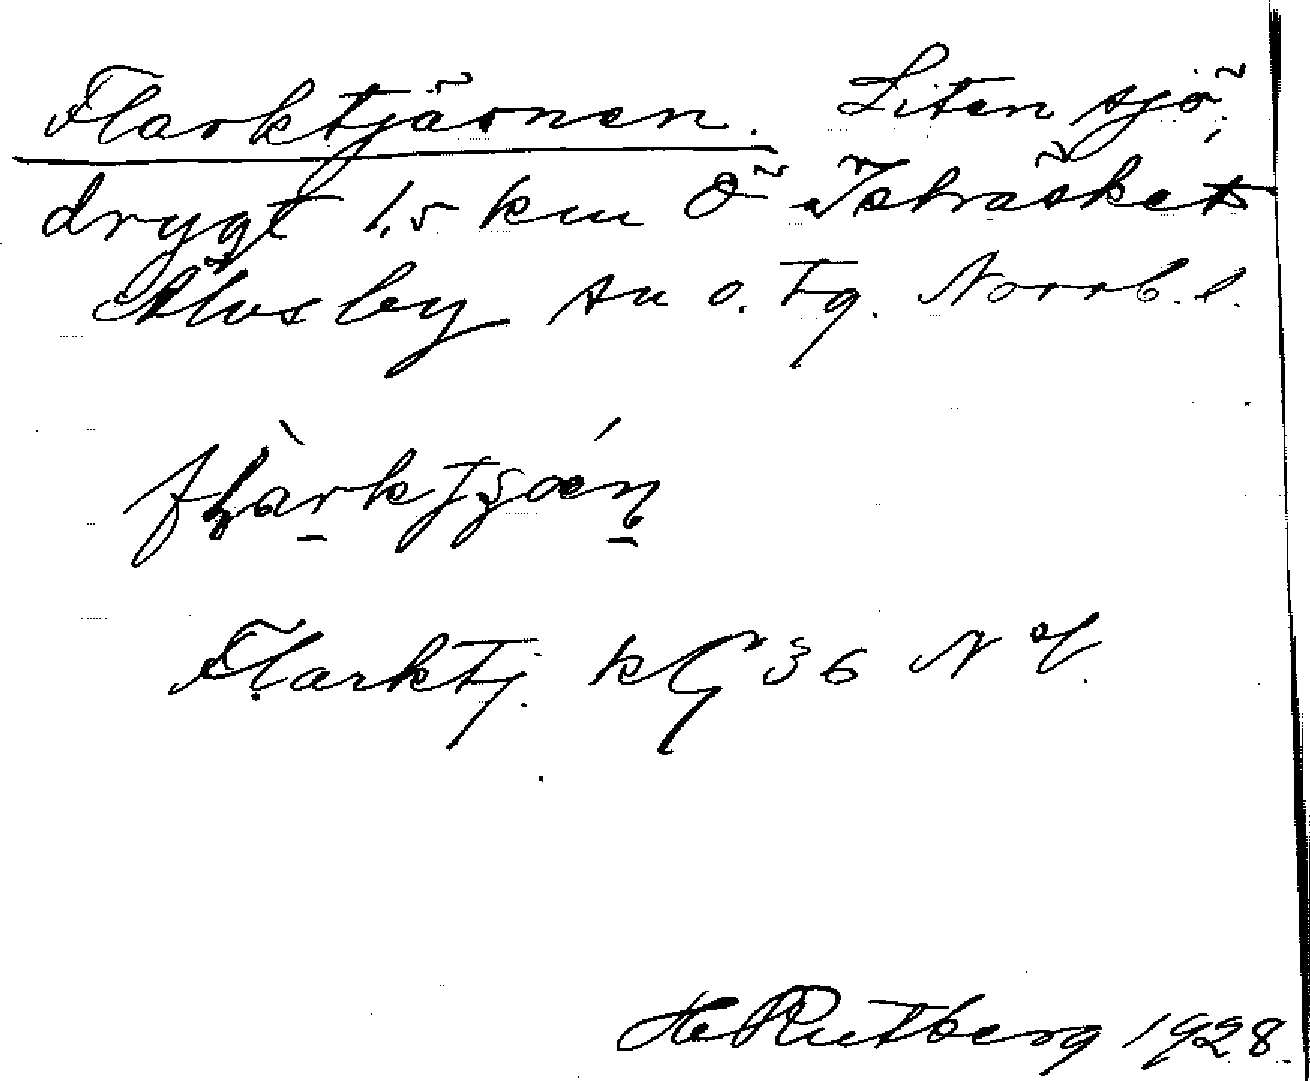 Flarktjärnen. Liten sjö,
drygt 1,5 km Ö Isträsket
Älvsby sn o. tg. Norrb. l.
Flarktj. kG 36 NV.
H Rutberg 1928.